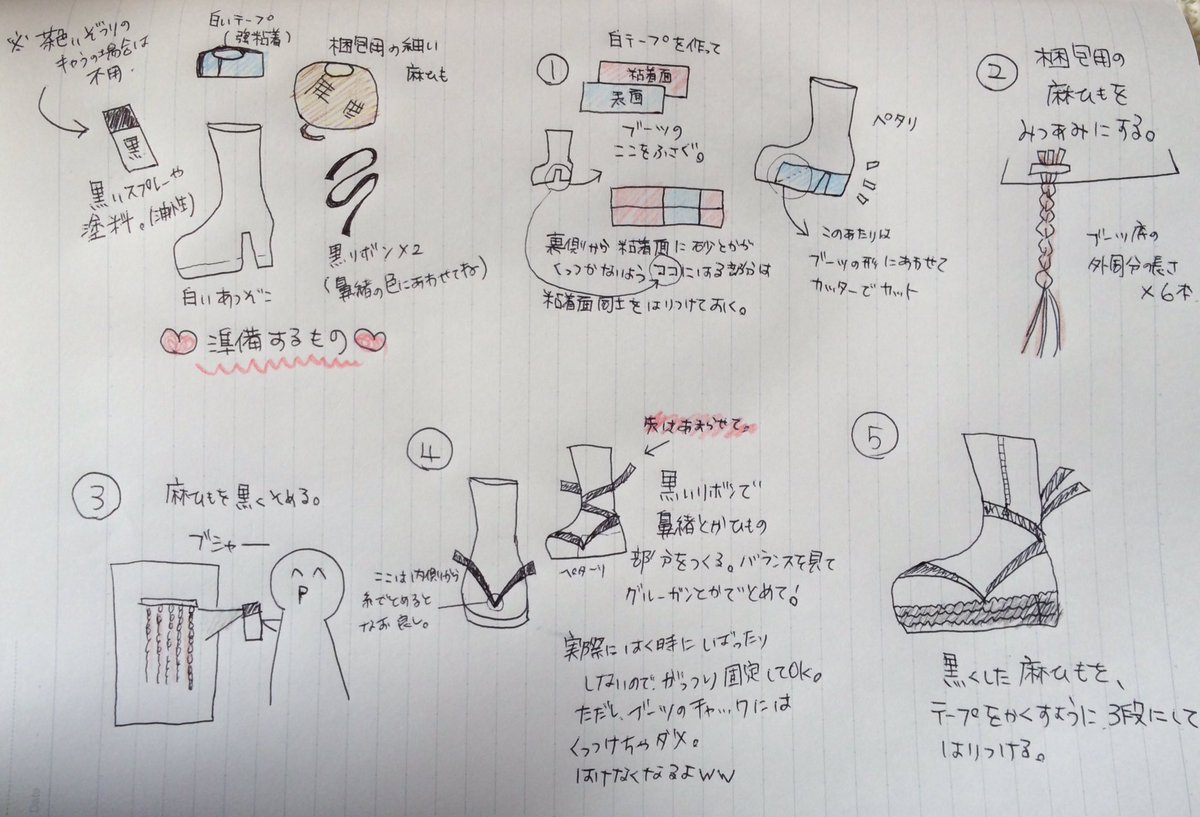 ※ 茶色いぞうりの
キャラの場合は
不用.
黒
黒いスプレーや
塗料。(油性)
白いテープ
(強粘着)
梱包用の細い
麻ひも
白いあつぞこ
黒リボン×2
(鼻緒の色にあわせてね)
準備するもの
①
白テープを作って
粘着面
表面
ブーツの
ここをふさぐ。
ペタリ
裏側から粘着面に砂とかが
くっつかないようココにはる部分は
粘着面同士をはりつけておく。
このあたりは
ブーツの形にあわせて
カッターでカット
②
梱包用の
麻ひもを
みつあみにする。
ブーツ底の
外周分の長さ
×6本
③
麻ひもを黒くそめる。
ブシャー
④
ここは内側から
糸でとめると
なお良し。
先はあまらせて。
ペターリ
黒いリボンで
鼻緒とかひもの
部分をつくる。バランスを見て
グルーガンとかでとめて!
実際にはく時にしばったり
しないので、がっつり固定してOK。
ただし、ブーツのチャックには
くっつけちゃダメ。
はけなくなるよww
⑤
黒くした麻ひもを、
テープをかくすように3段にして
はりつける。